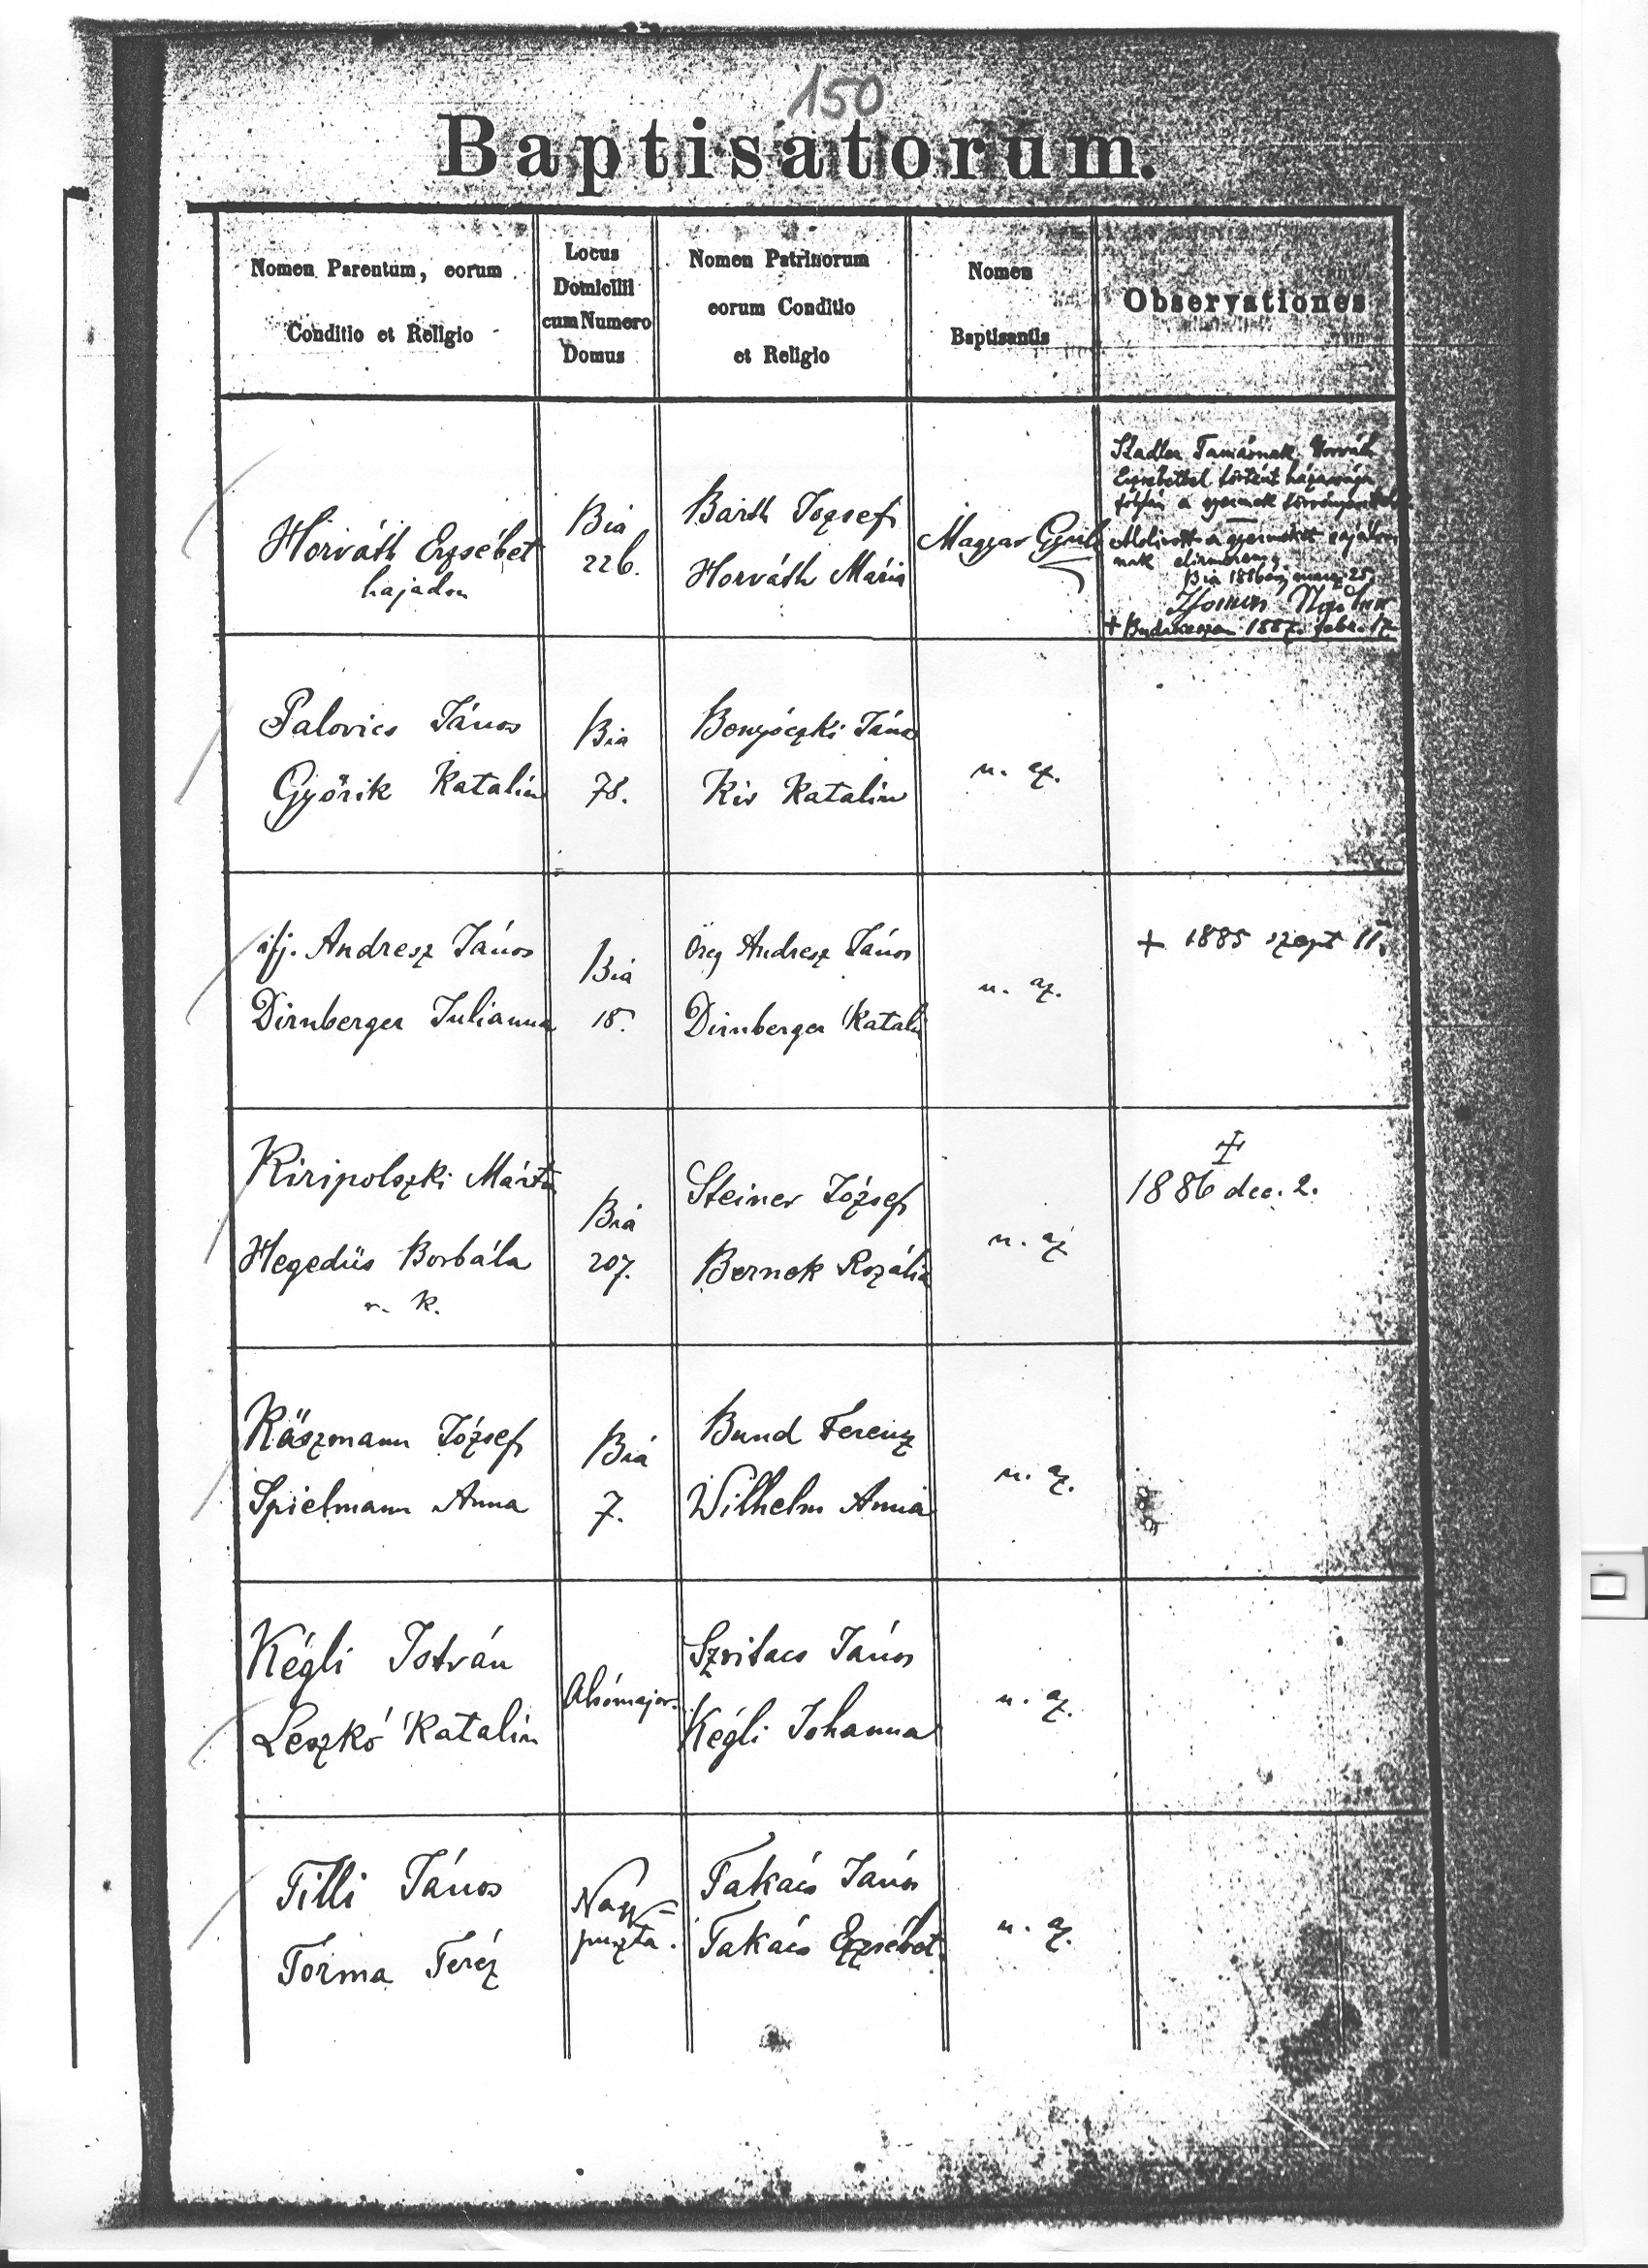 150
Baptisatorum.
Nomen Parentum, eorum
Conditio et Religio
Locus
Domicilii
cum Numero
Domus
Nomen Patrinorum
eorum Conditio
et Religio
Nomen
Baptisantis
Observationes
Horváth Erzsébet
hajadon
Bia
226.
Barth József
Horváth Mária
Magyar Gyula
Stadler Tamásnak Horváth
Erzsébettel történt házassága
folytán a gyermek
a gyermeket sajátjának
elismerem,
Bia 1886 márcz 25.
+ Budakeszin 1887. febr. 17.
Palovics János
Győrik Katalin
Bia
78.
János
Kis Katalin
u. az.
ifj. Andresz János
Dirnberger Julianna
Bia
18.
Öreg Andresz János
Dirnberger Katali
u. az.
+ 1885 szept 11.
Kiripolszki Márton
Hegedüs Borbála
r. k.
Bia
207.
Steiner József
Bernek Rozália
u. az
+
1886 dec. 2.
Käszmann József
Spielmann Anna
Bia
7.
Bund Ferencz
Wilhelm Anna
u. az.
Kégli István
Leszkó Katalin
Alsómajor.
Szvitacs János
Kégli Johanna
u. az.
Tilli János
Torma Teréz
Nagy=
puszta.
Takács János
Takács Erzsébet
u. az.